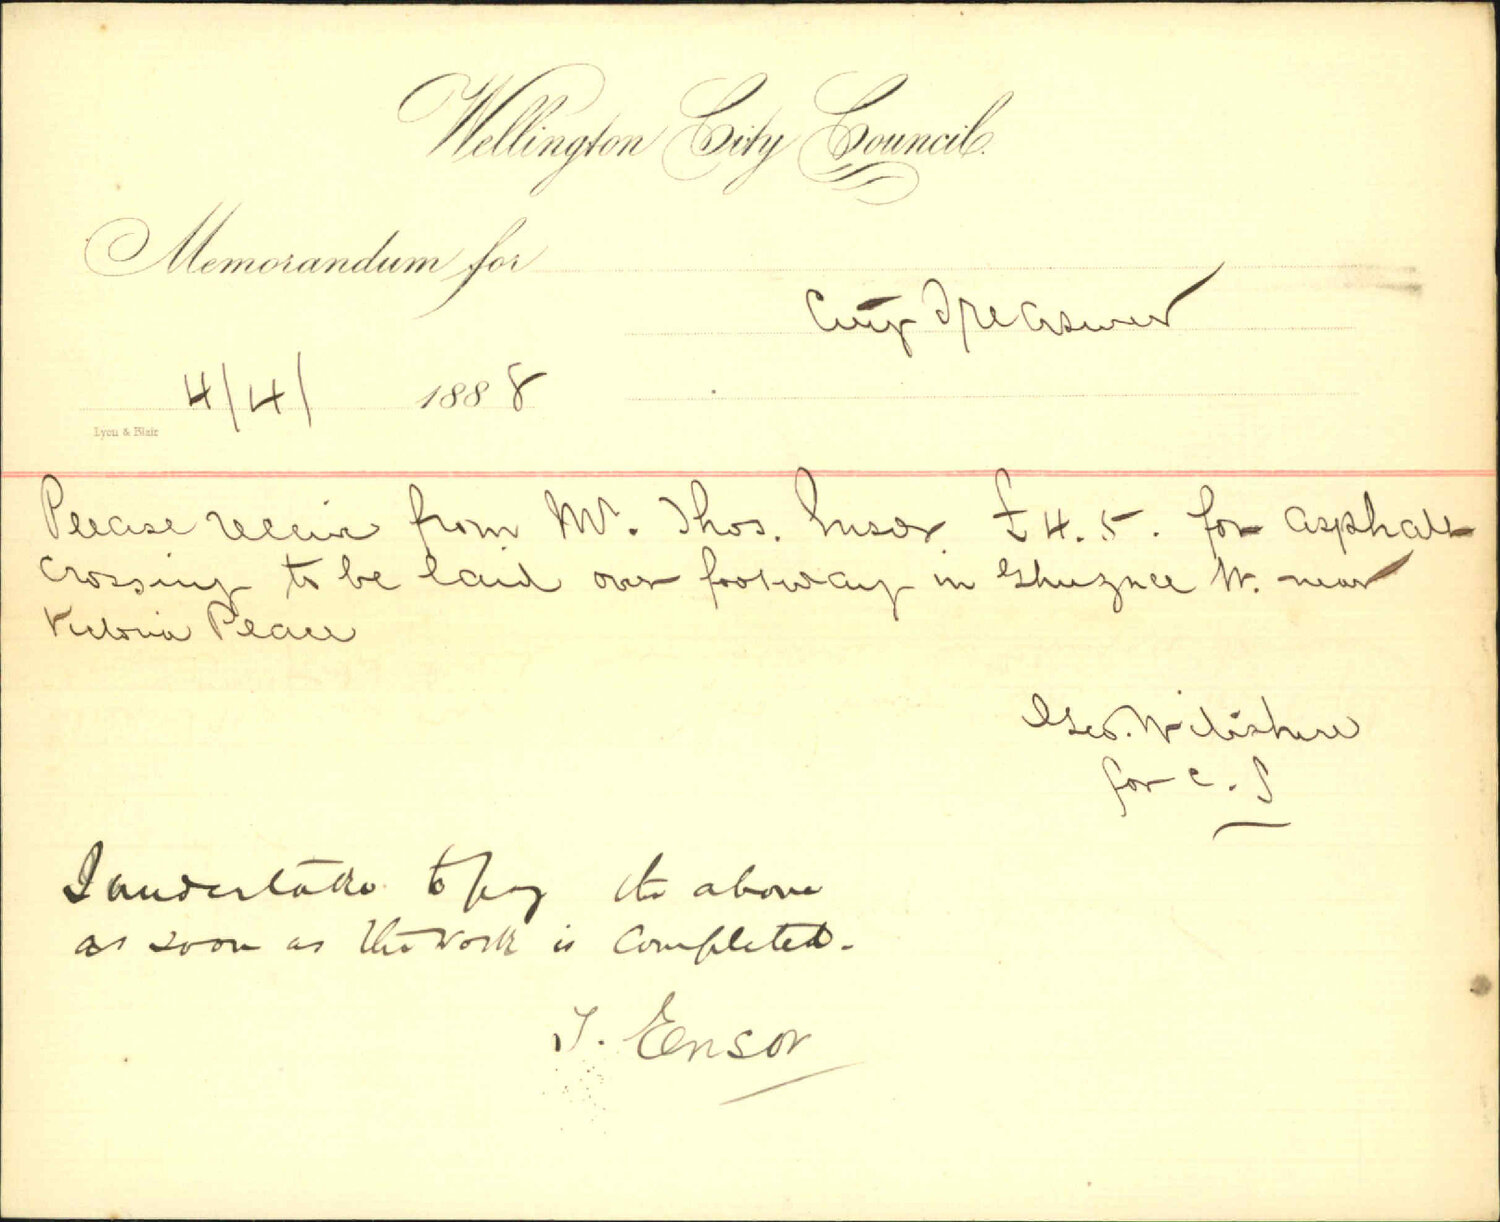 Wellington City Council.
Memorandum for
City Treasurer
4/4/ 1888
Lyon & Blair
Please receive from Mr. Thos. Ensor £4.5. for asphalt
crossing to be laid over footway in Ghuznee St. near
Victoria Place
Geo. Wiltshire
for C. S
I undertake to pay the above
as soon as the work is completed.
T. Ensor